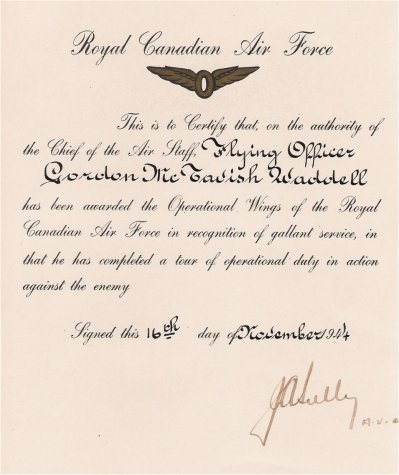 Royal Canadian Air Force
This is to Certify that, on the authority of
the Chief of the Air Staff, Flying Officer
Gordon McTavish Waddell
has been awarded the Operational Wings of the Royal
Canadian Air Force in recognition of gallant service, in
that he has completed a tour of operational duty in action
against the enemy
Signed this 16th day of November 1944